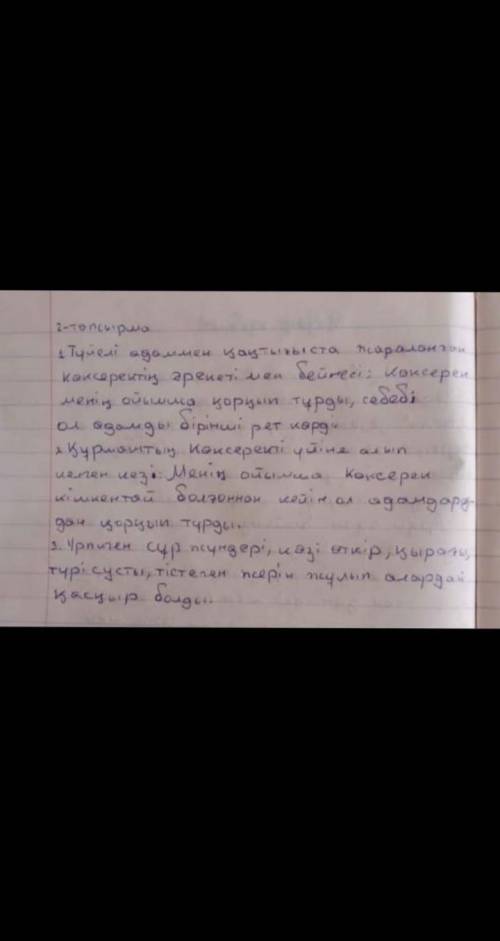 2-тапсырма
1. Түйелі адаммен қақтығыста жараланған
көксеректің әрекеті мен бейнесі: Көксерек
менің ойымша қорқып тұрды, себебі
ол адамды бірінші рет көрді
2. Құрмаштың Көксеректі үйіне алып
келген кезі: Менің ойымша Көксерек
кішкентай болғаннан кейін ол адамдард-
дан қорқып тұрды.
3. Үрпиген сұр жүндері, көзі өткір, қырағы,
түрі сусты, тістеген жерін жұлып алардай
қасқыр болды.